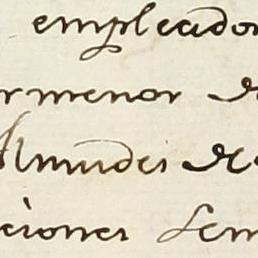 empleador
rmenor de
Almudes de
ciones sem